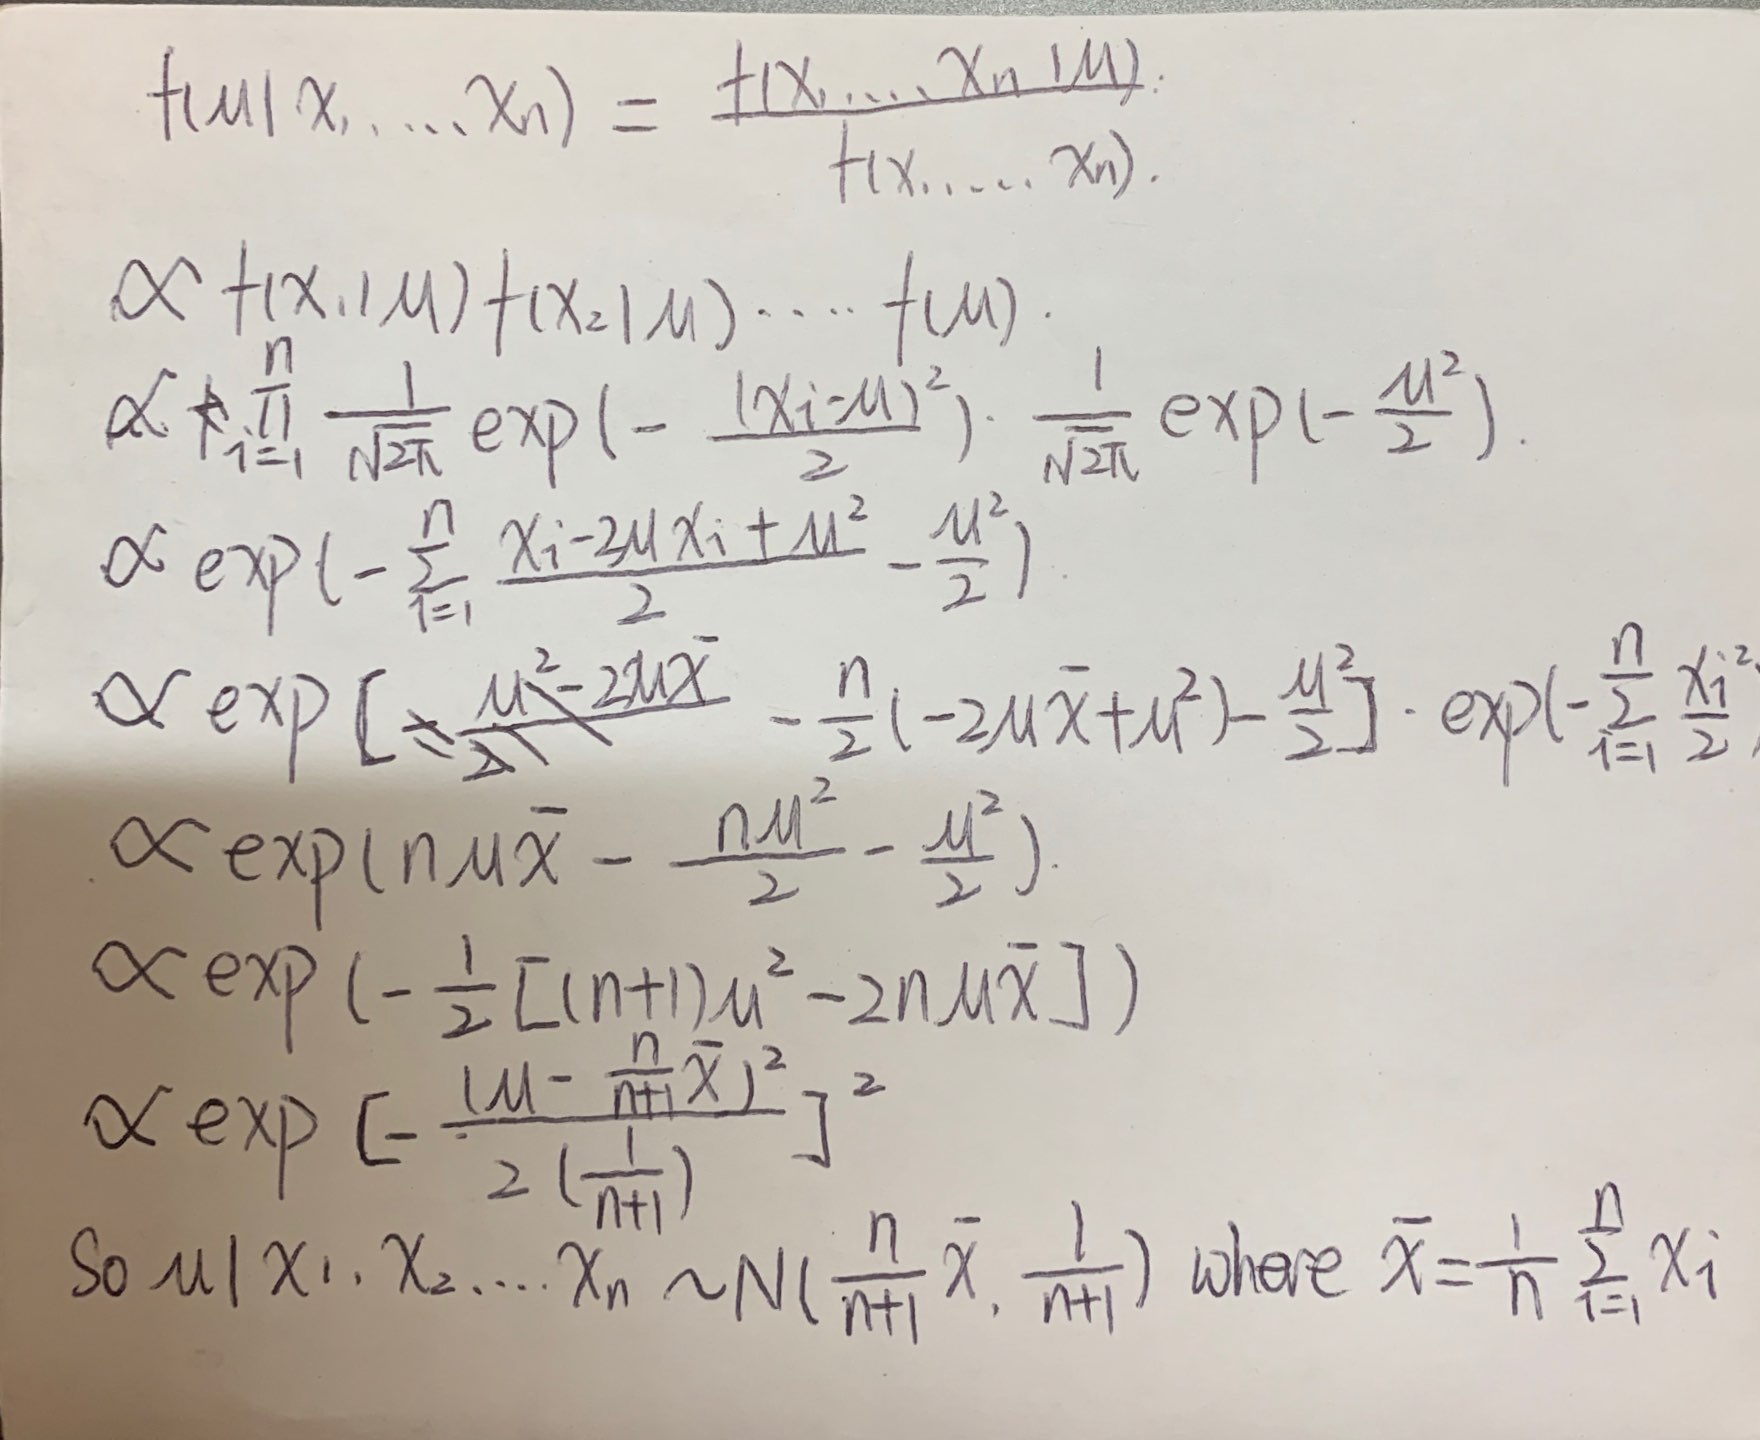 f(μ|x₁, ... xₙ) = f(x₁, ... xₙ|μ) / f(x₁, ... xₙ).
∝ f(x₁|μ) f(x₂|μ) .... f(μ).
∝ ∏ᵢ₌₁ⁿ 1/√2π exp(- (xᵢ-μ)²/2) · 1/√2π exp(- μ²/2).
∝ exp(- Σᵢ₌₁ⁿ (xᵢ-2μxᵢ+μ²)/2 - μ²/2).
∝ exp[ - n/2(-2μx̄+μ²) - μ²/2] · exp(- Σᵢ₌₁ⁿ xᵢ²/2)
∝ exp(nμx̄ - nμ²/2 - μ²/2).
∝ exp(- 1/2 [(n+1)μ² - 2nμx̄])
∝ exp[- (μ - n/(n+1) x̄)² / 2(1/(n+1))]²
So μ|x₁, x₂, ... xₙ ~ N(n/(n+1) x̄, 1/(n+1)) where x̄ = 1/n Σᵢ₌₁ⁿ xᵢ